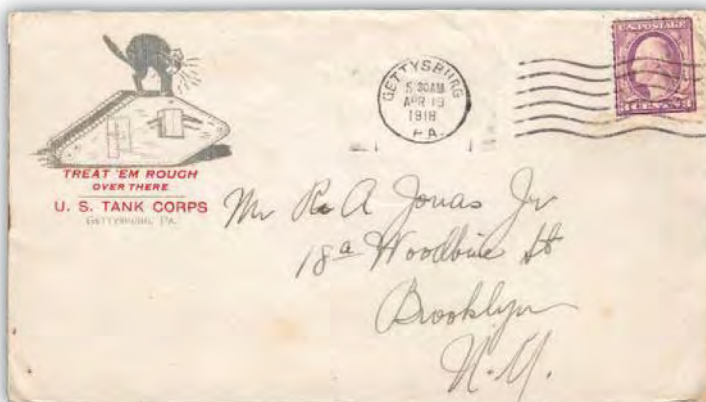 TREAT 'EM ROUGH
OVER THERE
U. S. TANK CORPS
GETTYSBURG, PA.
GETTYSBURG
5 30AM
APR 19
1918
PA.
U.S. POSTAGE
Mr R A Jonas Jr
18a Woodbine St
Brooklyn
N.Y.